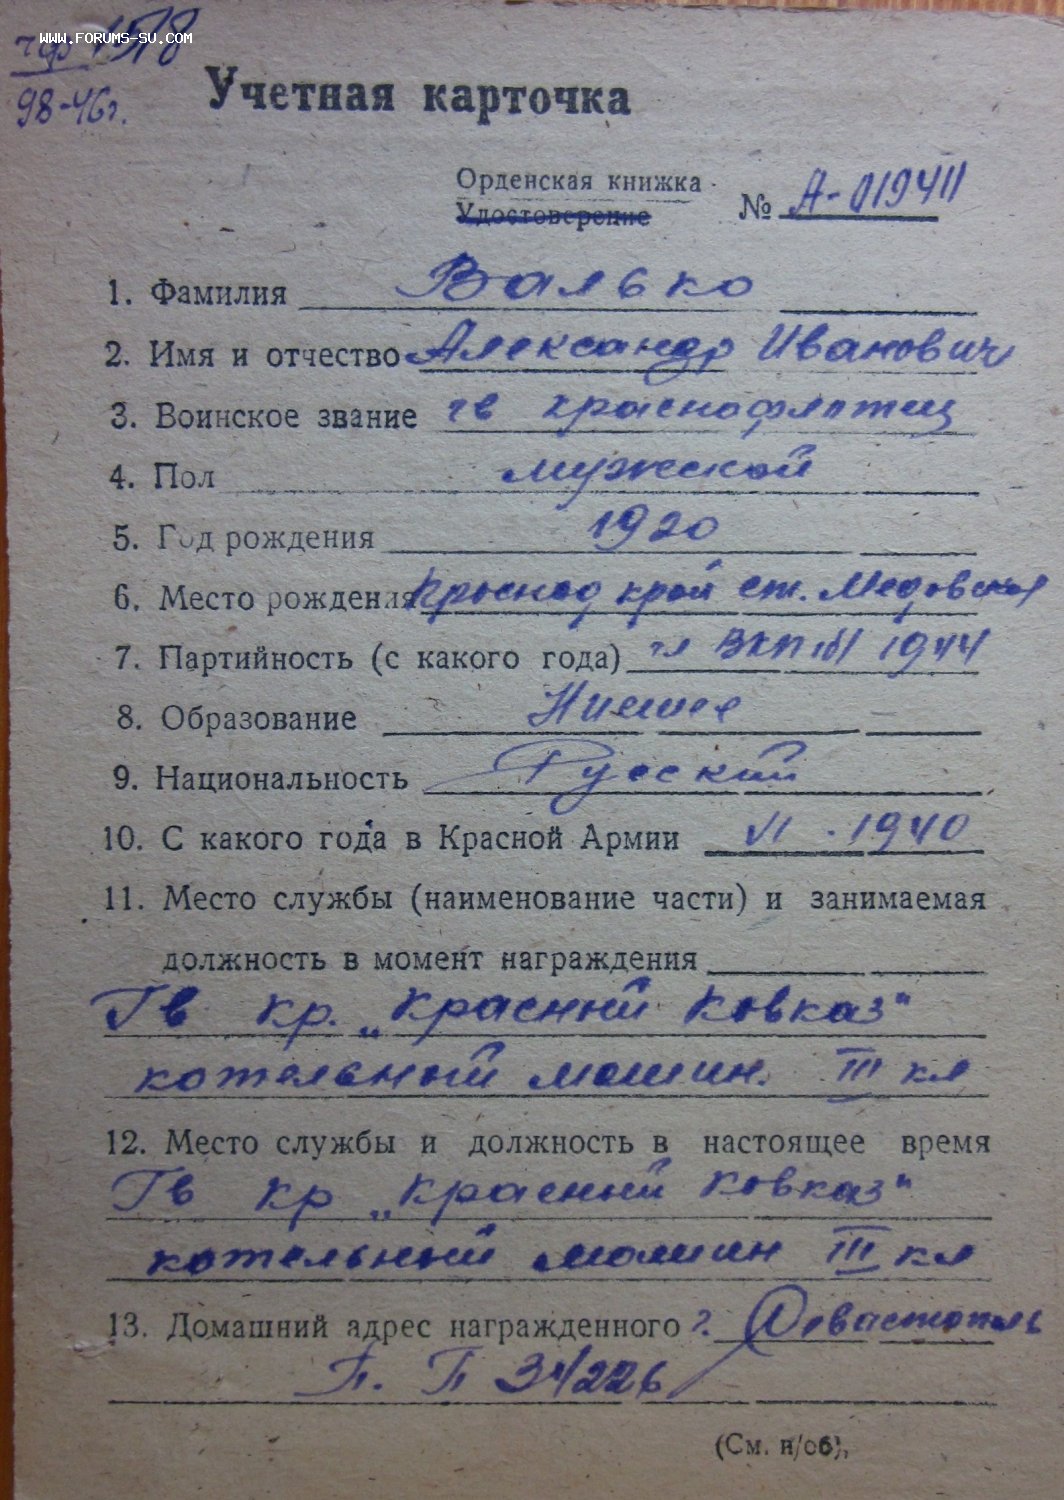 WWW.FORUMS-SU.COM
чф 1518
98-46г.
Учетная карточка
Орденская книжка
Удостоверение
№ А-019411
1. Фамилия Валько
2. Имя и отчество Александр Иванович
3. Воинское звание гв краснофлотец
4. Пол мужской
5. Год рождения 1920
6. Место рождения Краснод край ст. Медовская
7. Партийность (с какого года) чл ВКП(б) 1944
8. Образование Низшее
9. Национальность Русский
10. С какого года в Красной Армии VI - 1940
11. Место службы (наименование части) и занимаемая
должность в момент награждения
Гв кр. „Красный Кавказ"
котельный машин. III кл
12. Место службы и должность в настоящее время
Гв кр „Красный Кавказ"
котельный машин III кл
13. Домашний адрес награжденного г. Севастополь
П. П 34226
(См. н/об),